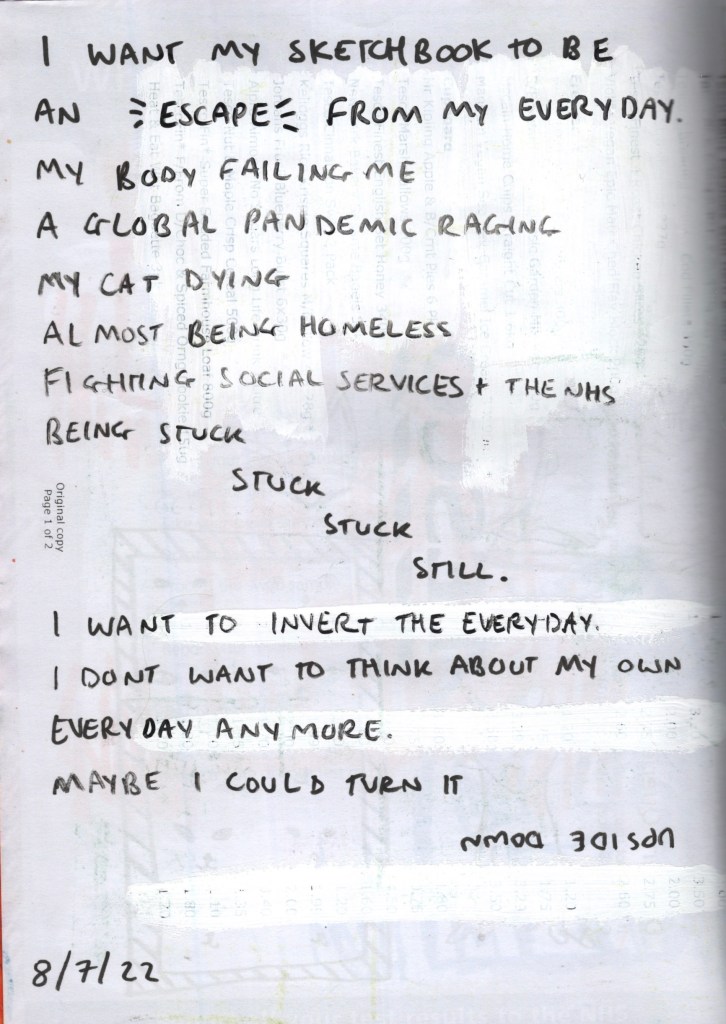 I WANT MY SKETCHBOOK TO BE
AN ESCAPE FROM MY EVERYDAY.
MY BODY FAILING ME
A GLOBAL PANDEMIC RAGING
MY CAT DYING
ALMOST BEING HOMELESS
FIGHTING SOCIAL SERVICES + THE NHS
BEING STUCK
STUCK
STUCK
STILL.
Original copy
Page 1 of 2
I WANT TO INVERT THE EVERYDAY.
I DONT WANT TO THINK ABOUT MY OWN
EVERYDAY ANYMORE.
MAYBE I COULD TURN IT
UPSIDE DOWN
8/7/22